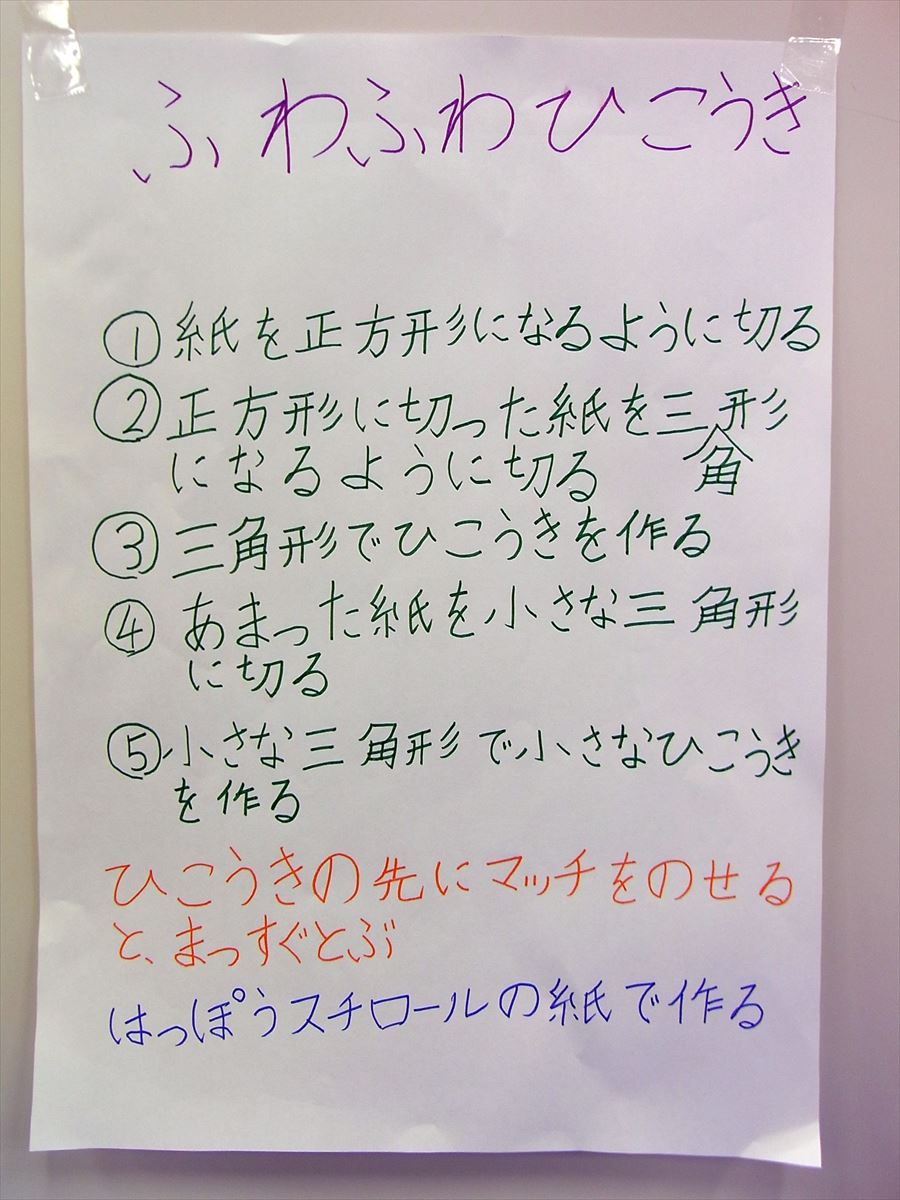 ふわふわひこうき
①紙を正方形になるように切る
②正方形に切った紙を三角形
になるように切る
③三角形でひこうきを作る
④あまった紙を小さな三角形
に切る
⑤小さな三角形で小さなひこうき
を作る
ひこうきの先にマッチをのせる
と、まっすぐとぶ
はっぽうスチロールの紙で作る